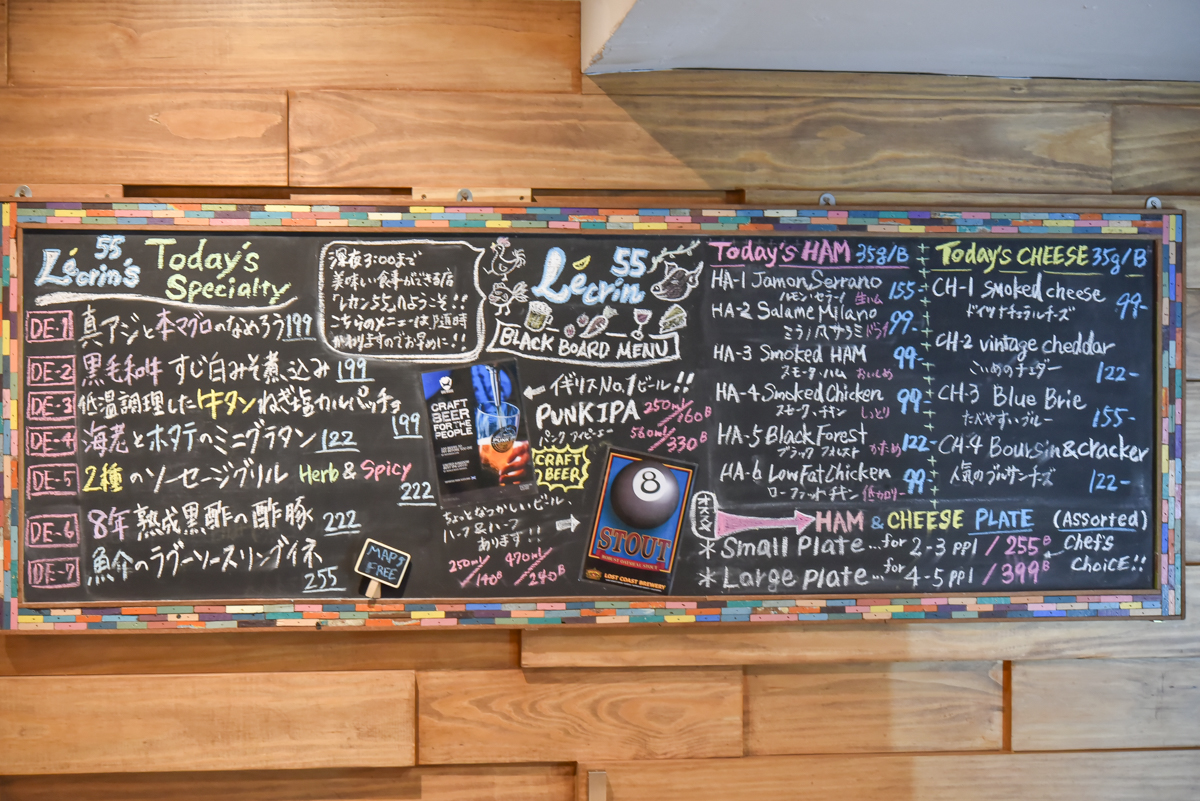 55
Lécrin's
Today's
Specialty
DE-1 真アジと本マグロのなめろう 199
DE-2 黒毛和牛 すじ白みそ煮込み 199
DE-3 低温調理した牛タンねぎ塩カルパッチョ
199
DE-4 海老とホタテのミニグラタン 122
DE-5 2種のソーセージグリル Herb & Spicy
222
DE-6 8年熟成黒酢の酢豚 222
DE-7 魚介のラグーソースリングイネ
255
深夜3:00まで
美味しい食事ができる店
「レカン55」へようこそ!!
こちらのメニューは随時
かわりますのでお早めに!!
55
Lécrin
BLACK BOARD MENU
CRAFT
BEER
FOR THE
PEOPLE
PUNK
IPA
イギリスNo.1ビール!!
PUNK IPA
パンク アイピーエー
250ml/160B
560ml/330B
CRAFT
BEER
ちょっとなつかしいビール
ハーフ&ハーフ
あります!!
250ml/140B
470ml/240B
MAP is
FREE
8
STOUT
LOST COAST BREWERY
Today's HAM 35g/B
HA-1 Jamon Serrano 155-
ハモン・セラーノ 生ハム
HA-2 Salame Milano 99-
ミラノ風サラミ ドライ
HA-3 Smoked HAM 99-
スモーク・ハム
HA-4 Smoked Chicken 99-
スモーク・チキン しっとり
HA-5 Black Forest 122-
ブラック フォレスト かため
HA-6 Low Fat Chicken 99-
ローファットチキン 低カロリー
Today's CHEESE 35g/B
CH-1 smoked cheese 99-
ドイツナチュラルチーズ
CH-2 vintage cheddar
こいめのチェダー 122-
CH-3 Blue Brie
たべやすいブルー 155-
CH-4 Boursin & cracker
人気のブルサンチーズ 122-
HAM & CHEESE PLATE (Assorted)
* Small Plate...for 2-3 ppl / 255B
* Large plate...for 4-5 ppl / 399B
Chef's
Choice!!